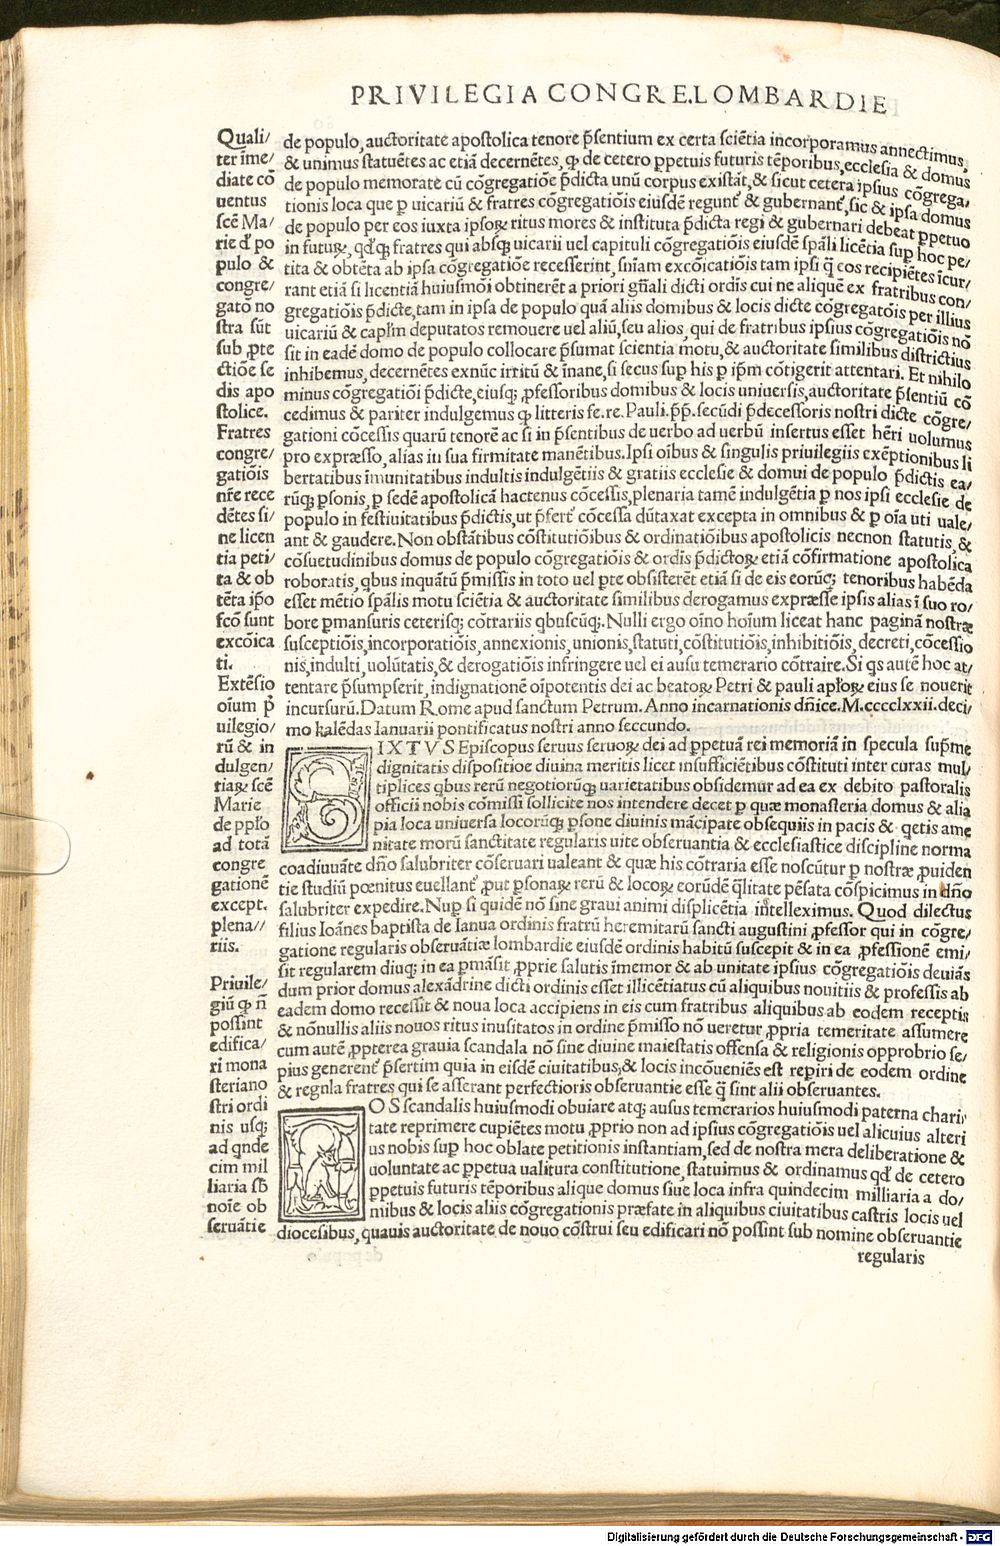 PRIVILEGIA CONGRE.LOMBARDIE
Quali/
ter īme/
diate cō
uentus
scē Ma/
rie d̄ po
pulo &
congre/
gatō no
stra sūt
sub ꝓte
ctiōe se
dis apo
stolice.
Fratres
congre/
gatiōis
nr̄e rece
dētes si/
ne licen
tia peti/
ta & ob
tēta ip̄o
fcō sunt
excōica
ti.
Extēsio
oīum p̄
uilegio/
rū & in
dulgen/
tiaꝝ scē
Marie
de pp̄lo
ad totā
congre
gationē
except.
plena//
riis.
Priuile/
giū ꝙ n̄
possint
edifica/
ri mona
steriano
stri ordi
nis usq;
ad qnde
cim mil
liaria sb̄
noīe ob
seruātie
de populo, auctoritate apostolica tenore p̄sentium ex certa sciētia incorporamus annectimus,
& unimus statuētes ac etiā decernētes, ꝙ de cetero ꝑpetuis futuris tēporibus, ecclesia & domus
de populo memorate cū cōgregatiōe p̄dicta unū corpus existāt, & sicut cetera ipsius cōgrega/
tionis loca que ꝑ uicariū & fratres cōgregatiōis eiusdē regunt̄ & gubernant̄, sic & ipsa domus
de populo per eos iuxta ipsoꝝ ritus mores & instituta p̄dicta regi & gubernari debeat ꝑpetuo
in futuꝝ, qd̄q; fratres qui absq; uicarii uel capituli cōgregatiōis eiusdē sp̄ali licētia suꝑ hoc pe/
tita & obtēta ab ipsa cōgregatiōe recesserint, sn̄iam excōicatiōis tam ipsi q̄ eos recipiētes īcur/
rant etiā si licentiā huiusmōi obtinerēt a priori gn̄ali dicti ordīs cui ne aliquē ex fratribus con/
gregatiōis p̄dicte, tam in ipsa de populo quā aliis domibus & locis dicte cōgregatōis per illius
uicariū & capl̄m deputatos remouere uel aliū, seu alios, qui de fratribus ipsius cōgregatiōis nō
sit in eadē domo de populo collocare p̄sumat scientia motu, & auctoritate similibus districtius
inhibemus, decernētes exnūc irritū & īnane, si secus suꝑ his ꝑ ip̄m cōtigerit attentari. Et nihilo
minus cōgregatiōi p̄dicte, eiusq; ꝓfessoribus domibus & locis uniuersis, auctoritate p̄sentiū cō
cedimus & pariter indulgemus ꝙ litteris fe. re. Pauli. pp̄. secūdi p̄decessoris nostri dicte cōgre/
gationi cōcessis quarū tenorē ac si in p̄sentibus de uerbo ad uerbū insertus esset hēri uolumus
pro expræsso, alias in sua firmitate manētibus. Ipsi oībus & singulis priuilegiis exēptionibus li
bertatibus īmunitatibus indultis indulgētiis & gratiis ecclesie & domui de populo p̄dictis ea/
rūq; psonis, ꝑ sedē apostolicā hactenus cōcessis, plenaria tamē indulgētia ꝑ nos ipsi ecclesie de
populo in festiuitatibus p̄dictis, ut p̄fert̄ cōcessa dūtaxat excepta in omnibus & ꝑ oīa uti uale/
ant & gaudere. Non obstātibus cōstitutiōibus & ordinatiōibus apostolicis necnon statutis, &
cōsuetudinibus domus de populo cōgregatiōis & ordīs p̄dictoꝝ etiā cōfirmatione apostolica
roboratis, qbus inquātū p̄missis in toto uel ꝑte obsisterēt etiā si de eis eorūq; tenoribus habēda
esset mētio sp̄alis motu sciētia & auctoritate similibus derogamus expræsse ipsis alias ī suo ro/
bore ꝑmansuris ceterisq; cōtrariis qbuscūq;. Nulli ergo oīno hoīum liceat hanc paginā nostræ
susceptiōis, incorporatiōis, annexionis, unionis, statuti, cōstitutiōis, inhibitiōis, decreti, cōcessio
nis, indulti, uolūtatis, & derogatiōis infringere uel ei ausu temerario cōtraire. Si qs autē hoc at/
tentare p̄sumpserit, indignationē oīpotentis dei ac beatoꝝ Petri & pauli apl̄oꝝ eius se nouerit
incursurū. Datum Rome apud sanctum Petrum. Anno incarnationis dn̄ice. M.cccclxxii. deci/
mo kalēdas Ianuarii pontificatus nostri anno seccundo.
SIXTVS Episcopus seruus seruoꝝ dei ad ꝑpetuā rei memoriā in specula sup̄me
dignitatis dispositioe diuina meritis licet insufficiētibus cōstituti inter curas mul/
tiplices qbus rerū negotiorūq; uarietatibus obsidemur ad ea ex debito pastoralis
officii nobis cōmissi sollicite nos intendere decet ꝑ quæ monasteria domus & alia
pia loca uniuersa locorūq; ꝑsone diuinis mācipate obsequiis in pacis & qetis ame
nitate morū sanctitate regularis uite obseruantia & ecclesiastice discipline norma
coadiuuāte dn̄o salubriter cōseruari ualeant & quæ his cōtraria esse noscūtur ꝑ nostræ ꝓuiden
tie studiū pœnitus euellant̄ ꝓut ꝑsonaꝝ rerū & locoꝝ eorūdē q̄litate pēsata cōspicimus in dn̄o
salubriter expedire. Nuꝑ si quidē nō sine graui animi displicētia intelleximus. Quod dilectus
filius Ioānes baptista de Ianua ordinis fratrū heremitarū sancti augustini ꝓfessor qui in cōgre/
gatione regularis obseruātiæ lombardie eiusdē ordinis habitū suscepit & in ea ꝓfessionē emi/
sit regularem diuq; in ea ꝑmāsit ꝓprie salutis īmemor & ab unitate ipsius cōgregatiōis deuiās
dum prior domus alexādrine dicti ordinis esset illicētiatus cū aliquibus nouitiis & professis ab
eadem domo recessit & noua loca accipiens in eis cum fratribus aliquibus ab eodem receptis
& nōnullis aliis nouos ritus inusitatos in ordine p̄misso nō ueretur ꝓpria temeritate assumere
cum autē ꝓpterea grauia scandala nō sine diuine maiestatis offensa & religionis opprobrio se/
pius generent̄ p̄sertim quia in eisdē ciuitatibus, & locis incōueniēs est reꝑiri de eodem ordine
& regnla fratres qui se asserant perfectioris obseruantie esse q̄ sint alii obseruantes.
NOS scandalis huiusmodi obuiare atq; ausus temerarios huiusmodi paterna chari/
tate reprimere cupiētes motu ꝓprio non ad ipsius cōgregatiōis uel alicuius alteri
us nobis suꝑ hoc oblate petitionis instantiam, sed de nostra mera deliberatione &
uoluntate ac ꝑpetua ualitura constitutione, statuimus & ordinamus qd̄ de cetero
ꝑpetuis futuris tēporibus alique domus siue loca infra quindecim milliaria a do/
mibus & locis aliis cōgregationis præfate in aliquibus ciuitatibus castris locis uel
diocesibus, quauis auctoritate de nouo cōstrui seu edificari nō possint sub nomine obseruantie
regularis
Digitalisierung gefördert durch die Deutsche Forschungsgemeinschaft - DFG